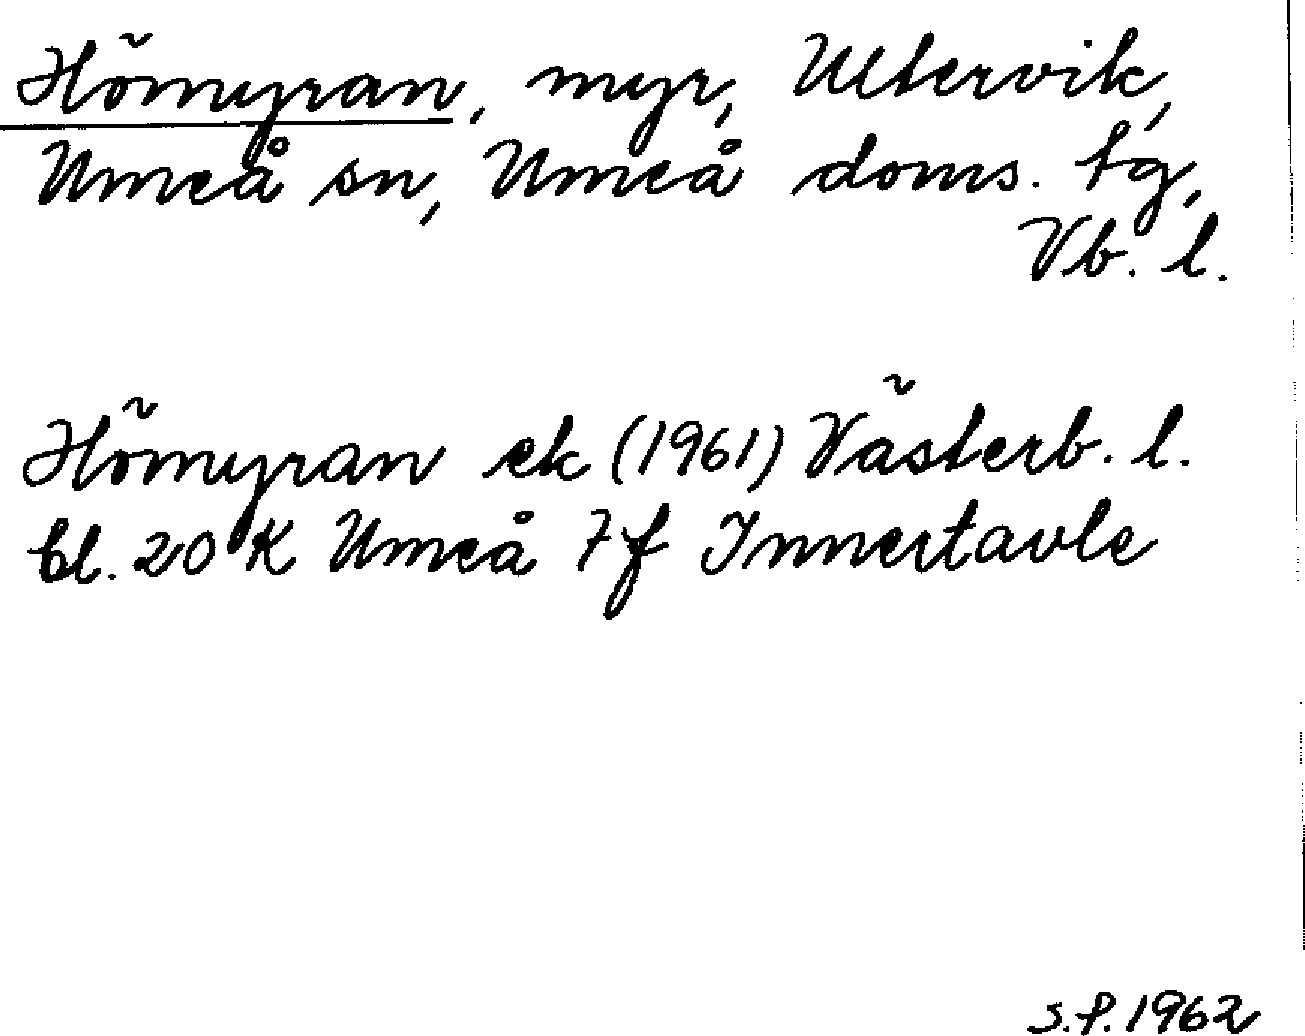 Hömyran, myr, Ultervik,
Umeå sn, Umeå doms. tg,
Vb. l.
Hömyran ek (1961) Västerb. l.
bl. 20 K Umeå 7f Innertavle
S.P. 1962